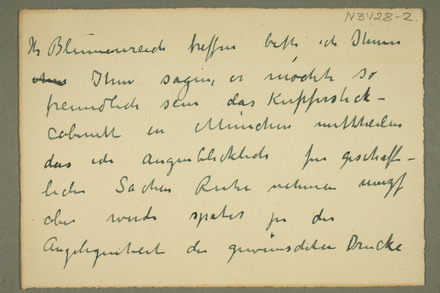 N3428-2
Hr Blumenreich treffen bitte ich Ihnen
Ihm sagen, er möchte so
freundlich sein das Kupferstich-
Cabinett in München mittheilen
das ich augenblicklich für geschäft-
liche Sachen Ruhe nehmen muss
aber werde später zu der
Angelegenheit der gewünschten Drucke